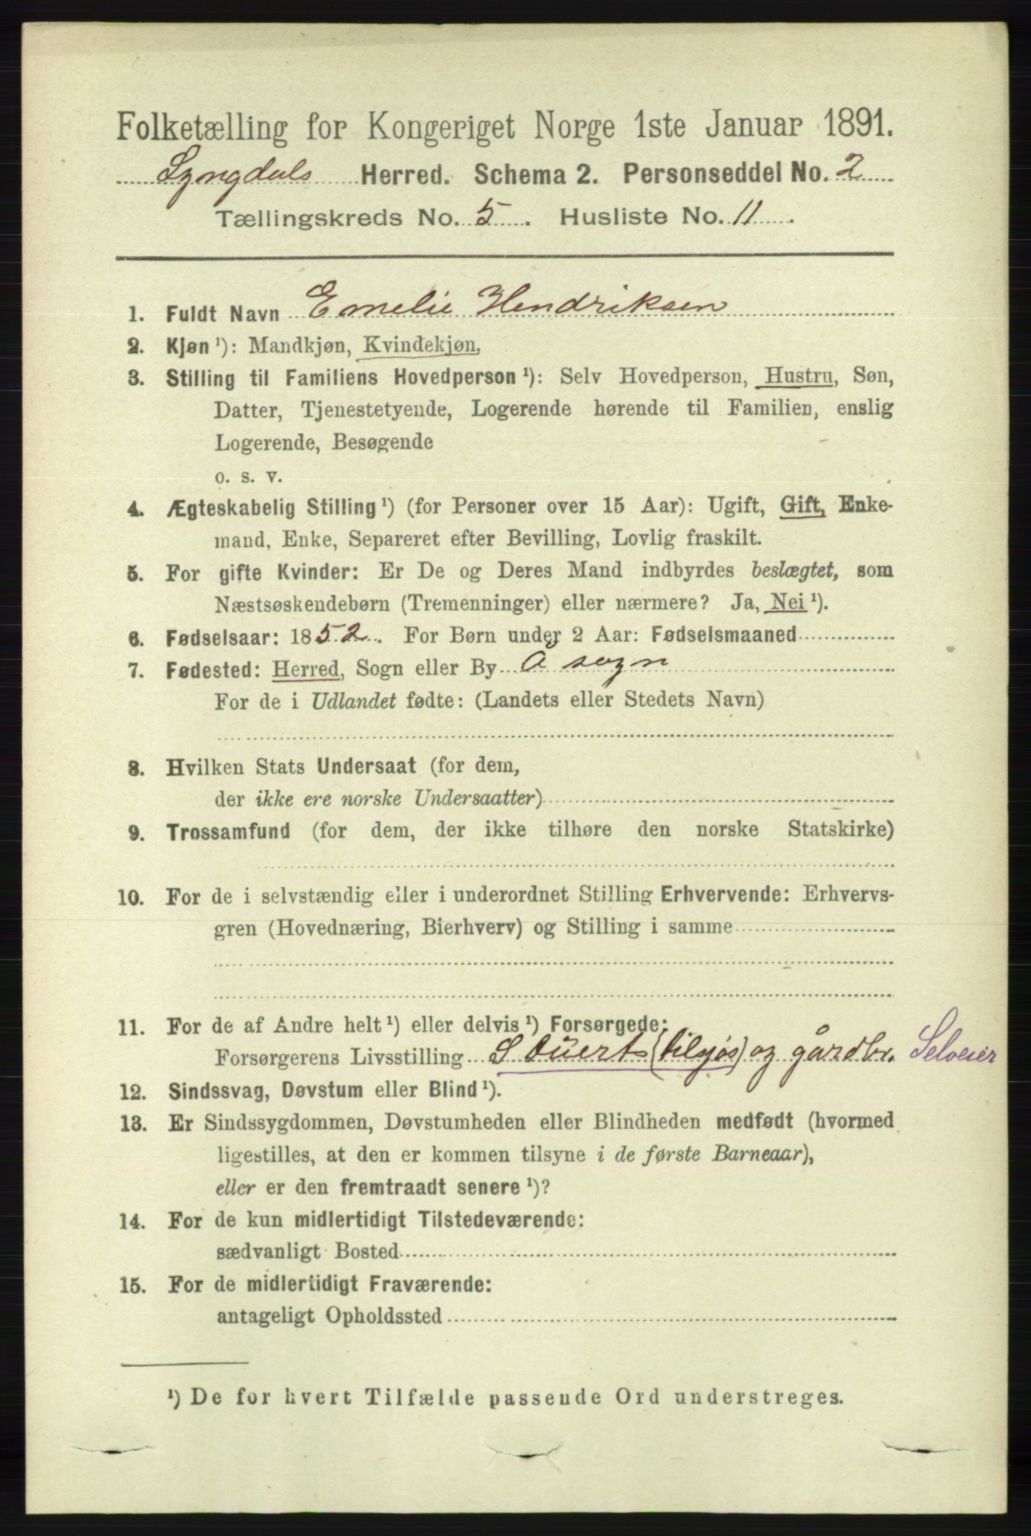 Folketælling for Kongeriget Norge 1ste Januar 1891.
Lyngdals Herred. Schema 2. Personseddel No. 2
Tællingskreds No. 5. Husliste No. 11.
1. Fuldt Navn Emelie Hendriksen
2. Kjøn ¹): Mandkjøn, Kvindekjøn.
3. Stilling til Familiens Hovedperson ¹): Selv Hovedperson, Hustru, Søn,
Datter, Tjenestetyende, Logerende hørende til Familien, enslig
Logerende, Besøgende
o. s. v.
4. Ægteskabelig Stilling ¹) (for Personer over 15 Aar): Ugift, Gift, Enke-
mand, Enke, Separeret efter Bevilling, Lovlig fraskilt.
5. For gifte Kvinder: Er De og Deres Mand indbyrdes beslægtet, som
Næstsøskendebørn (Tremenninger) eller nærmere? Ja, Nei ¹).
6. Fødselsaar: 1852. For Børn under 2 Aar: Fødselsmaaned
7. Fødested: Herred, Sogn eller By Å sogn
For de i Udlandet fødte: (Landets eller Stedets Navn)
8. Hvilken Stats Undersaat (for dem,
der ikke ere norske Undersaatter)
9. Trossamfund (for dem, der ikke tilhøre den norske Statskirke)
10. For de i selvstændig eller i underordnet Stilling Erhvervende: Erhvervs-
gren (Hovednæring, Bierhverv) og Stilling i samme
11. For de af Andre helt ¹) eller delvis ¹) Forsørgede:
Forsørgerens Livsstilling (tilsjøs) og gårdbr. Selveier
12. Sindssvag, Døvstum eller Blind ¹).
13. Er Sindssygdommen, Døvstumheden eller Blindheden medfødt (hvormed
ligestilles, at den er kommen tilsyne i de første Barneaar),
eller er den fremtraadt senere ¹)?
14. For de kun midlertidigt Tilstedeværende:
sædvanligt Bosted
15. For de midlertidigt Fraværende:
antageligt Opholdssted
¹) De for hvert Tilfælde passende Ord understreges.